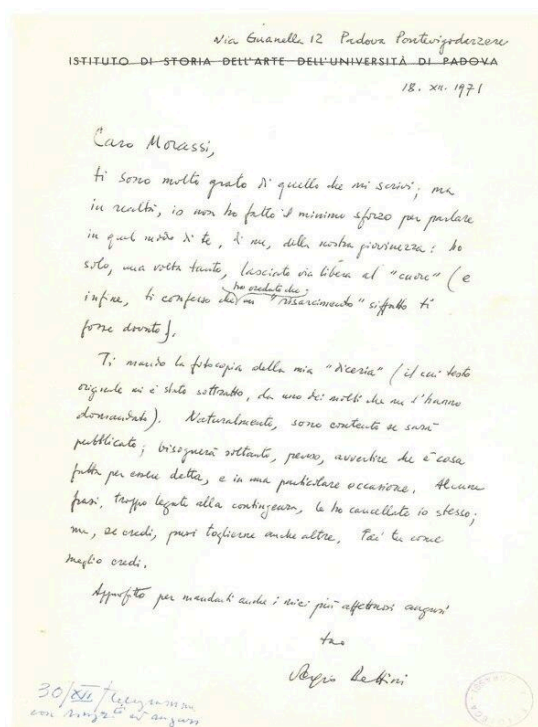 Via Guanella 12 Padova Pontevigodarzere
ISTITUTO DI STORIA DELL'ARTE DELL'UNIVERSITÀ DI PADOVA
18. XII. 1971
Caro Morassi,
ti sono molto grato di quello che mi scrivi; ma
in realtà, io non ho fatto il minimo sforzo per parlare
in quel modo di te, di me, della nostra giovinezza: ho
solo, una volta tanto, lasciato via libera al "cuore" (e
ho creduto che
infine, ti confesso che un "risarcimento" siffatto ti
fosse dovuto).
Ti mando la fotocopia della mia "diceria" (il cui testo
originale mi è stato sottratto, da uno dei molti che me l'hanno
domandato). Naturalmente, sono contento se sarà
pubblicato; bisognerà soltanto, penso, avvertire che è cosa
fatta per essere detta, e in una particolare occasione. Alcune
frasi, troppo legate alla contingenza, le ho cancellate io stesso;
ma, se credi, puoi toglierne anche altre. Fai tu come
meglio credi.
Approfitto per mandarti anche i miei più affettuosi auguri
tuo
Sergio Bettini
30/XII/ telegramma
con ringrti ed auguri